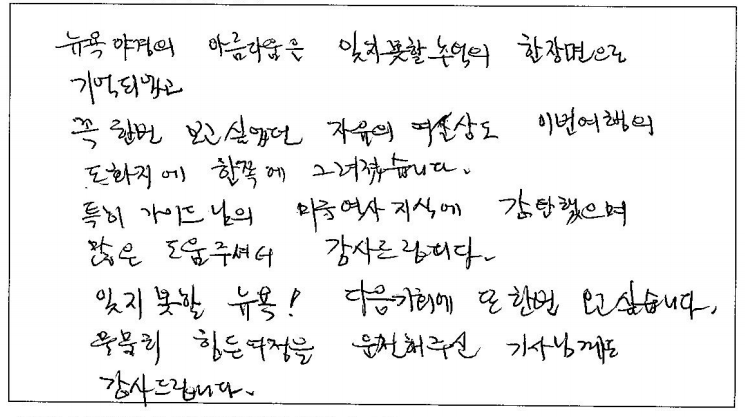 뉴욕 야경의 아름다움은 잊지못할 추억의 한장면으로
기억되었고
꼭 한번 보고 싶었던 자유의 여신상도 이번여행의
도화지에 한쪽에 그려졌습니다.
특히 가이드님의 미국역사 지식에 감탄했으며
많은 도움주셔서 감사드립니다.
잊지 못할 뉴욕! 다음기회에 또 한번 오고싶습니다.
묵묵히 힘든여정을 운전해주신 기사님께도
감사드립니다.